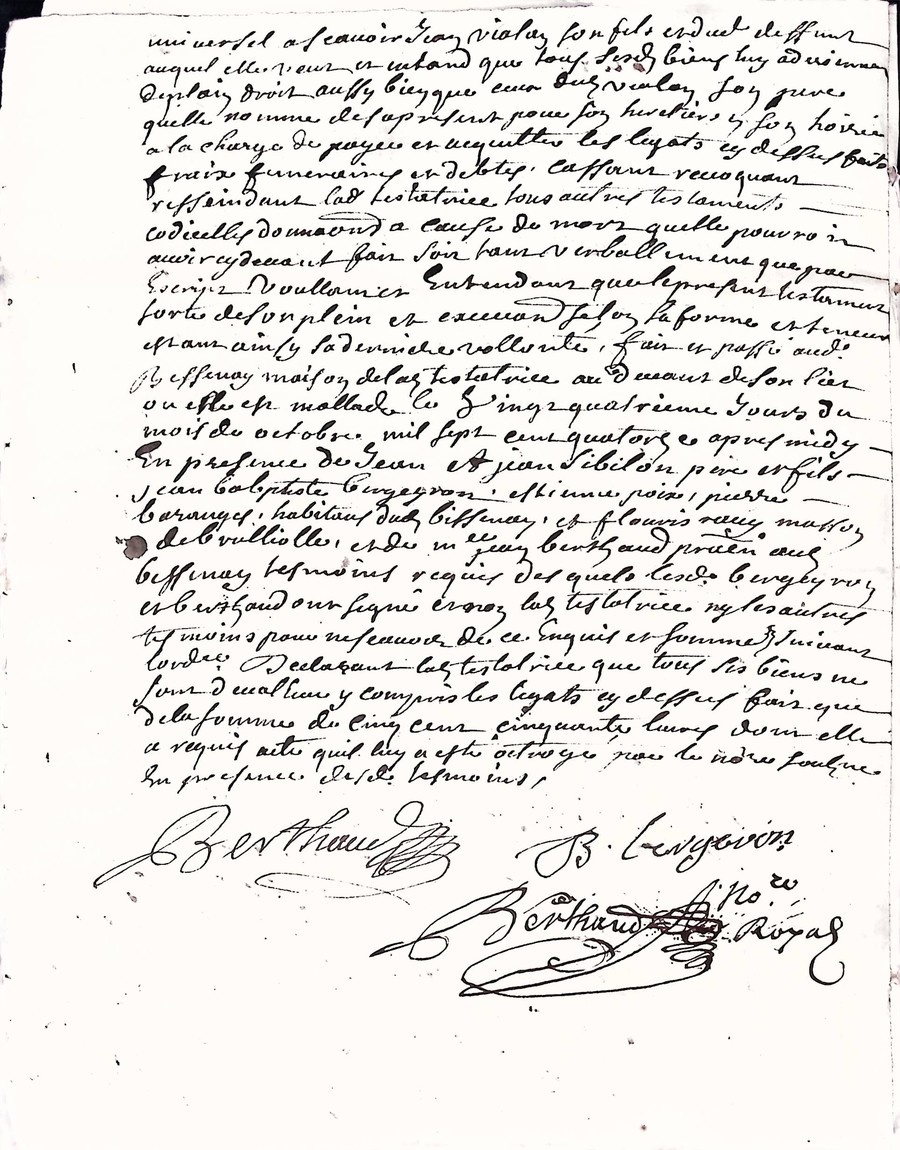 universel a scavoir Jean violay son fils et dud deffunt
auquel elle veut et entand que tous sesd biens luy adviennent
de plain droit aussy bien que ceux dud violay son pere
quelle nomme des apresent pour son heretier en son hoirie
a la charge de payer et acquitter les legats cy dessus faits
fraix funeraires et debtes, cassant revoquant
ressindant lad testatrice tous autres testaments
codicelles donnaond a cause de mort quelle pourroit
avoir cy devant fait soit tant verballement que par
Escript Voullant et Entendant que le present testament
sorte de son plein et execuaon selon sa forme et teneur
estant ainsy sa derniere vollonte, fait et passé aud
Bessenay maison de lad testatrice au devant de son lict
ou elle est mallade le Vingt quatrieme Jours du
mois de octobre mil sept cent quatorze apres midy
En presence de Jean et jean Sibilon pere et fils
Jean baptiste bergeyron, estienne poix, pierre
baranges, habitans dud bissenay, et flouris masson
de brulliolle, et de me jean berthaud praen aud
bessenay tesmoins requis des quels lesd bergeyron
et berthaud ont signé et non lad testatrice ny les autres
tesmoins pour ne scavoir de ce Enquis et sommés suivant
lordce Declarant lad testatrice que tous ses biens ne
sont de valleur y compris les legats cy dessus fait que
de la somme de cinq cent cinquante livres dont elle
a requis acte quil luy a esté octroyé par le nore soubsne
En presence desd tesmoins,
Berthaud B. bergeron
Berthaud No.re
Royal